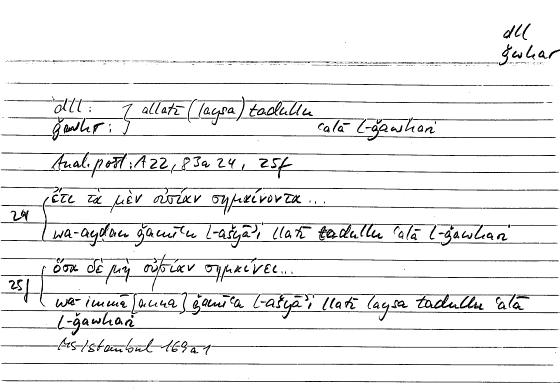 dll
ǧwhar
dll: } allatī (laysa) tadullu
ǧwhr: } ʿalā l-ǧawhari
Anal. post.: A22, 83a24, 25f
24 ἔτι τὰ μὲν οὐσίαν σημαίνοντα...
wa-ayḍan ǧamīʿu l-ašyāʾi llatī tadullu ʿalā l-ǧawhari
25f ὅσα δὲ μὴ οὐσίαν σημαίνει...
wa-immā [amma] ǧamīʿa l-ašyāʾi llatī laysa tadullu ʿalā
l-ǧawhari
Ms Istanbul 169a1